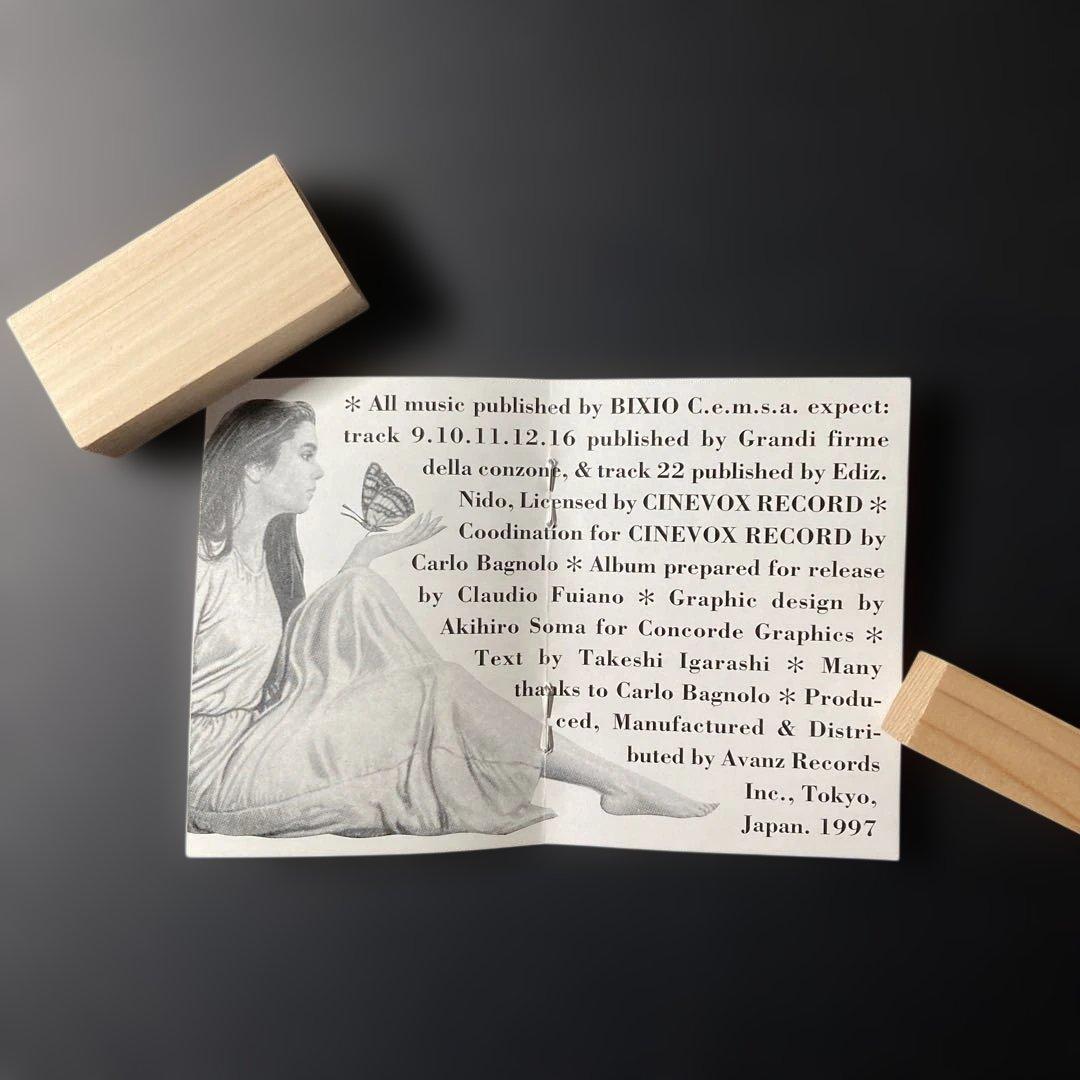 ✻ All music published by BIXIO C.e.m.s.a. expect:
track 9.10.11.12.16 published by Grandi firme
della conzone, & track 22 published by Ediz.
Nido, Licensed by CINEVOX RECORD ✻
Coodination for CINEVOX RECORD by
Carlo Bagnolo ✻ Album prepared for release
by Claudio Fuiano ✻ Graphic design by
Akihiro Soma for Concorde Graphics ✻
Text by Takeshi Igarashi ✻ Many
thanks to Carlo Bagnolo ✻ Produ-
ced, Manufactured & Distri-
buted by Avanz Records
Inc., Tokyo,
Japan. 1997